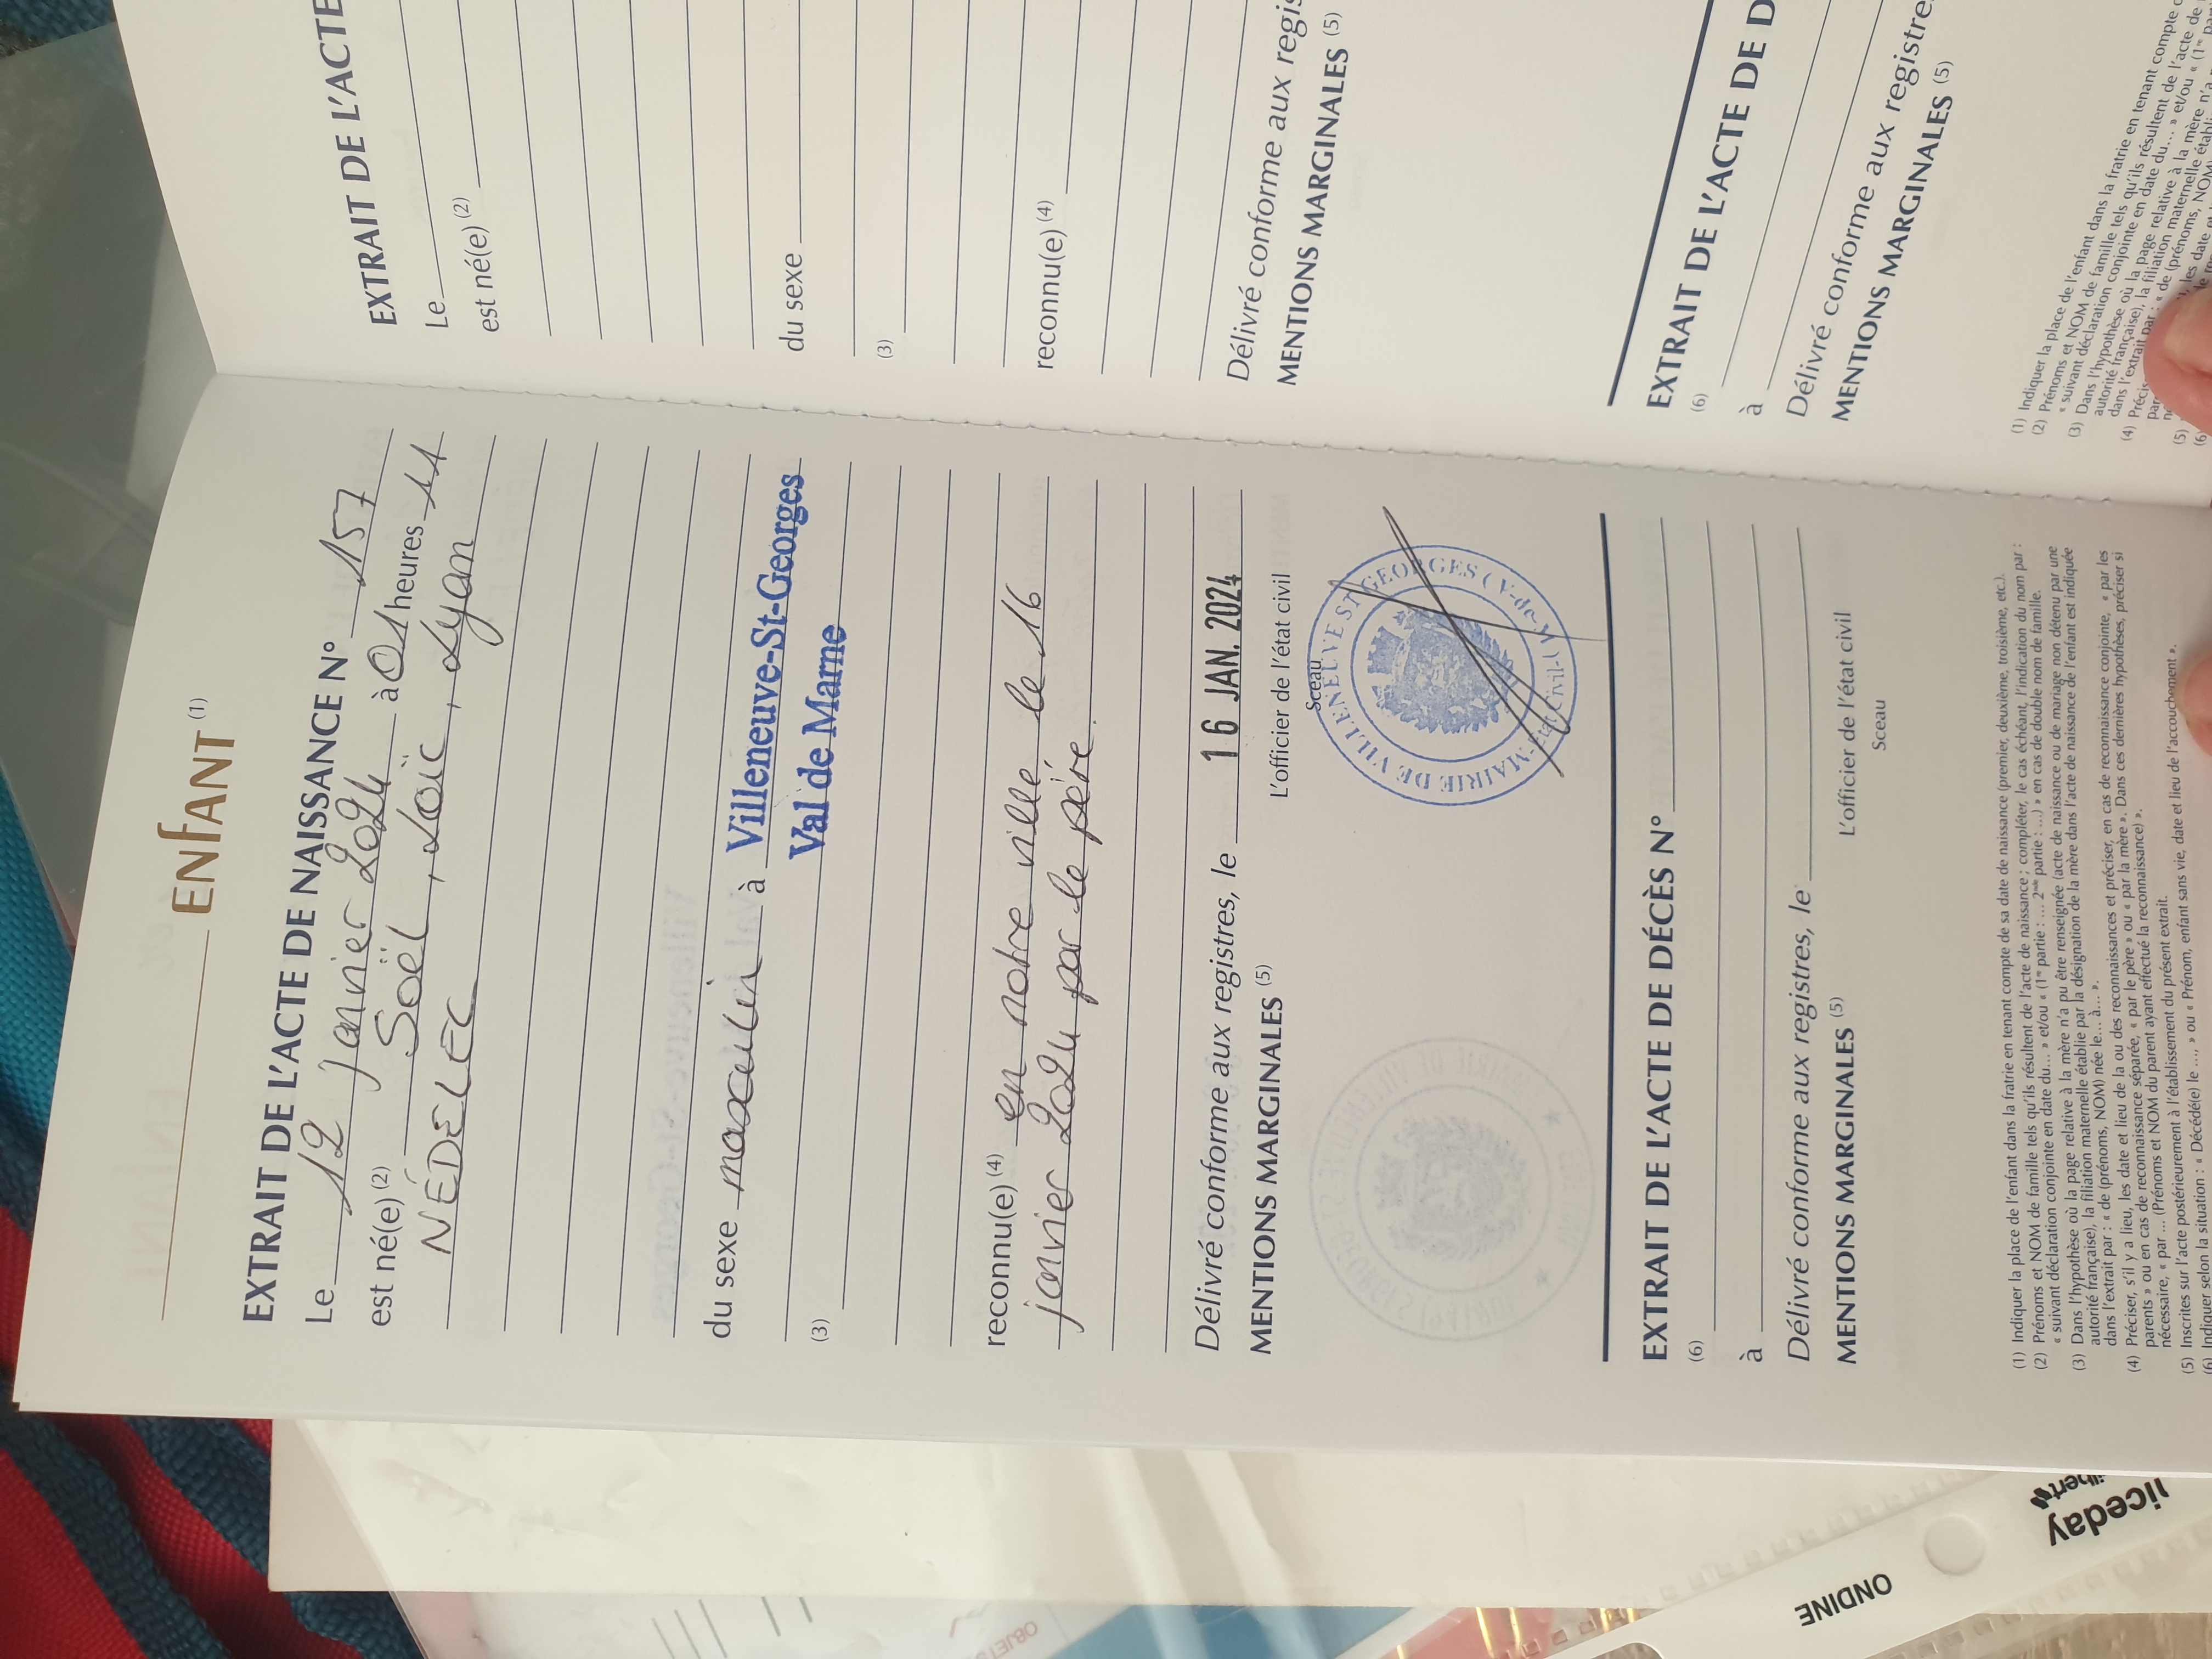 ENFANT (1)
EXTRAIT DE L'ACTE DE NAISSANCE N° 157
Le 12 janvier 2024 à 01 heures 11
est né(e) (2) Soël, Loïc, Lyam
NÉDELEC
du sexe masculin à Villeneuve-St-Georges
Val de Marne
(3)
reconnu(e) (4) en notre ville le 16
janvier 2024 par le père.
Délivré conforme aux registres, le 16 JAN. 2024
MENTIONS MARGINALES (5)
L'officier de l'état civil
Sceau
MAIRIE DE VILLENEUVE ST GEORGES (V-de-M)
Etat Civil
EXTRAIT DE L'ACTE DE DÉCÈS N°
(6)
à
Délivré conforme aux registres, le
MENTIONS MARGINALES (5)
L'officier de l'état civil
Sceau
(1) Indiquer la place de l'enfant dans la fratrie en tenant compte de sa date de naissance (premier, deuxième, troisième, etc.).
(2) Prénoms et NOM de famille tels qu'ils résultent de l'acte de naissance ; compléter, le cas échéant, l'indication du nom par :
« suivant déclaration conjointe en date du... » et/ou « (1re partie : ... 2nde partie : ...) » en cas de double nom de famille.
(3) Dans l'hypothèse où la page relative à la mère n'a pu être renseignée (acte de naissance ou de mariage non détenu par une
autorité française), la filiation maternelle établie par la désignation de la mère dans l'acte de naissance de l'enfant est indiquée
dans l'extrait par : « de (prénoms, NOM) née le... à... ».
(4) Préciser, s'il y a lieu, les date et lieu de la ou des reconnaissances et préciser, en cas de reconnaissance conjointe, « par les
parents » ou en cas de reconnaissance séparée, « par le père » ou « par la mère ». Dans ces dernières hypothèses, préciser si
nécessaire, « par ... (Prénoms et NOM du parent ayant effectué la reconnaissance) ».
(5) Inscrites sur l'acte postérieurement à l'établissement du présent extrait.
(6) Indiquer selon la situation : « Décédé(e) le ..., » ou « Prénom, enfant sans vie, date et lieu de l'accouchement ».
EXTRAIT DE L'ACTE
Le
est né(e) (2)
du sexe
(3)
reconnu(e) (4)
Délivré conforme aux regis
MENTIONS MARGINALES (5)
EXTRAIT DE L'ACTE DE D
(6)
à
Délivré conforme aux registre
MENTIONS MARGINALES (5)
(1) Indiquer la place de l'enfant dans la fratrie en tenant compte
(2) Prénoms et NOM de famille tels qu'ils résultent de l'acte de
« suivant déclaration conjointe en date du... » et/ou « (1re
(3) Dans l'hypothèse où la page relative à la mère n'a
autorité française), la filiation maternelle établi
dans l'extrait par : « de (prénoms, NOM
(4)
(5)
(6)
niceday
ONDINE